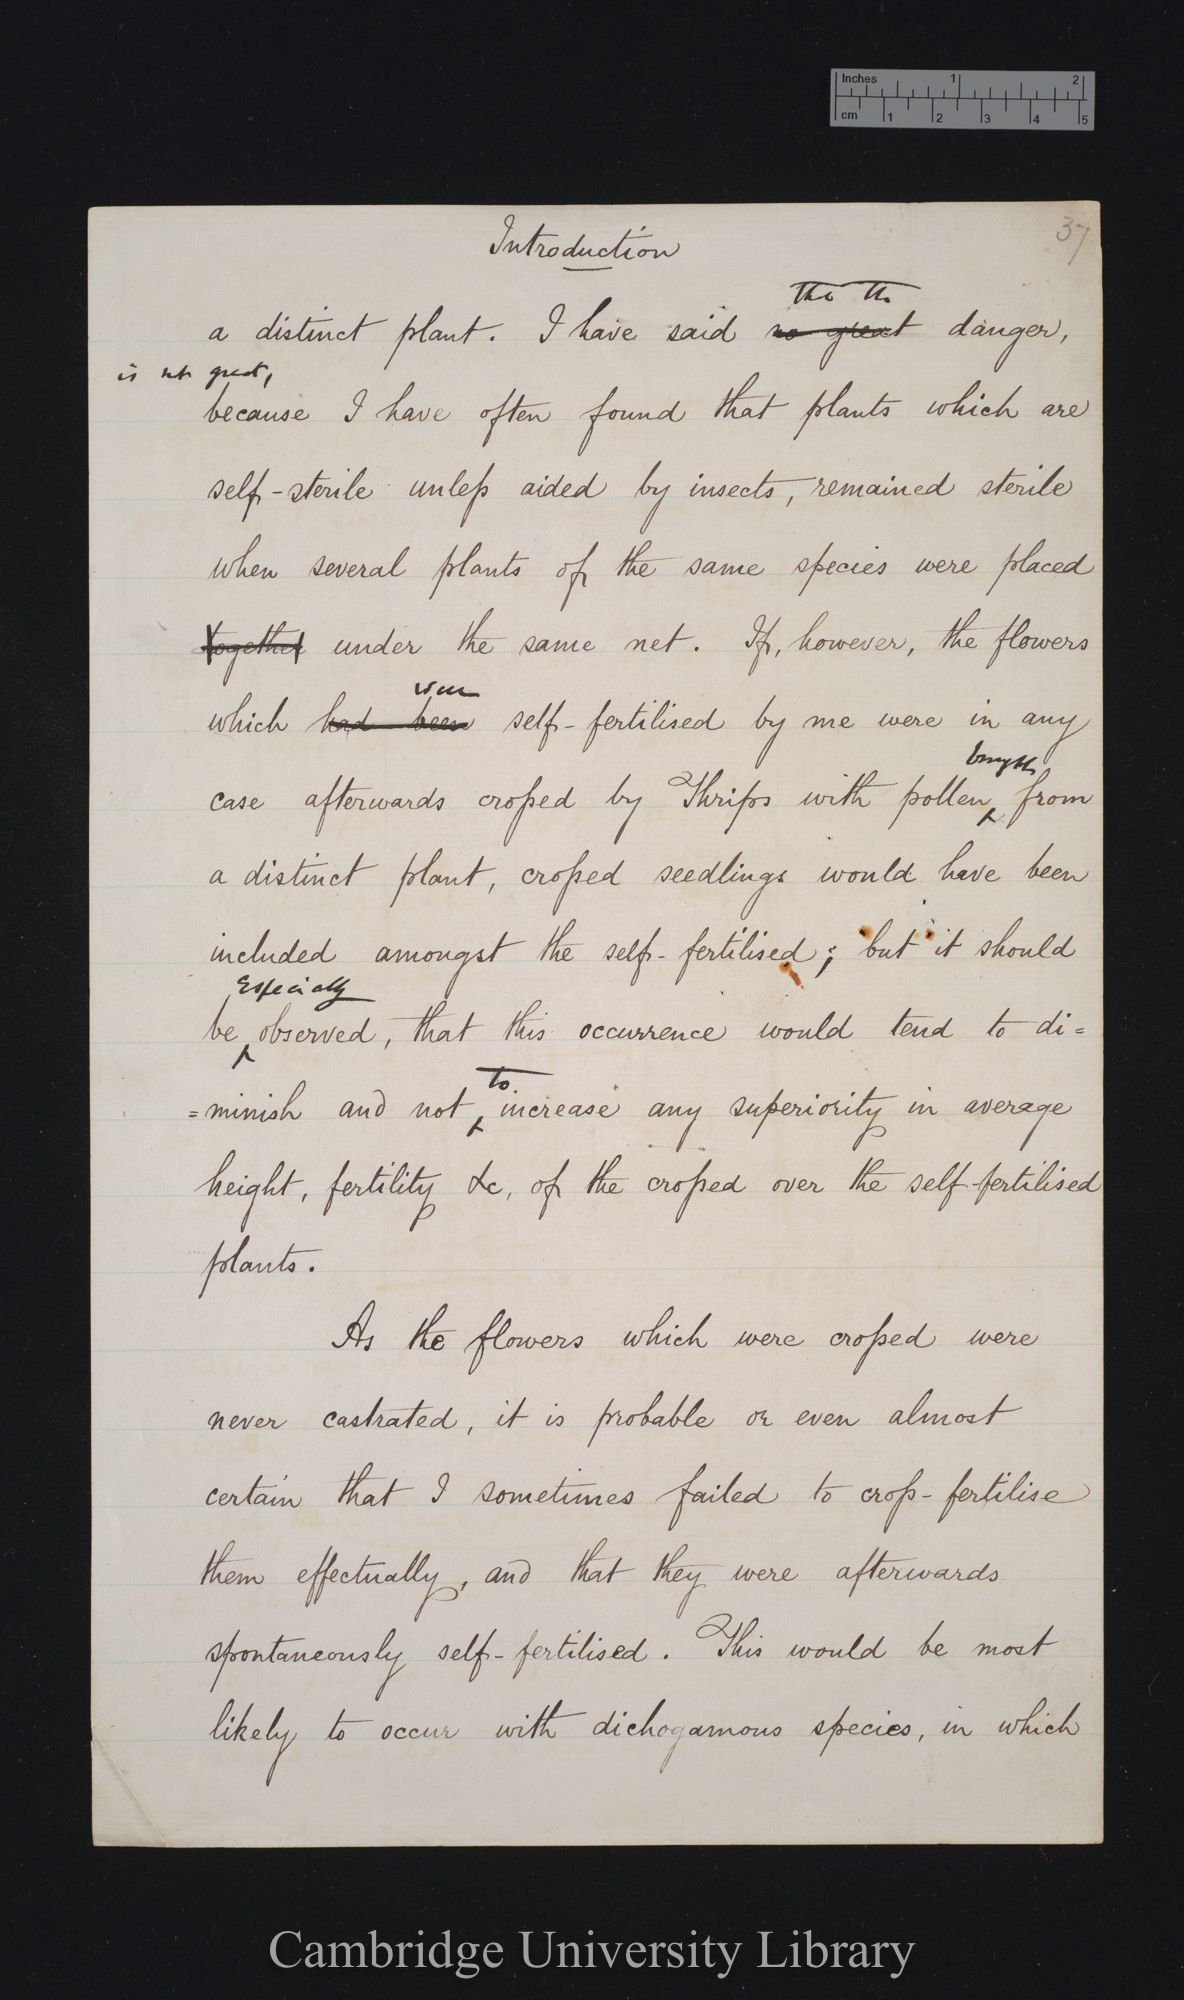 Inches 1 2
cm 1 2 3 4 5
37
Introduction
that the
a distinct plant. I have said no great danger,
is not great,
because I have often found that plants which are
self-sterile unless aided by insects, remained sterile
when several plants of the same species were placed
together under the same net. If, however, the flowers
were
which had been self-fertilised by me were in any
brought
case afterwards crossed by Thrips with pollen from
a distinct plant, crossed seedlings would have been
included amongst the self-fertilised; but it should
especially
be observed, that this occurrence would tend to di=
to
=minish and not increase any superiority in average
height, fertility &c, of the crossed over the self-fertilised
plants.
As the flowers which were crossed were
never castrated, it is probable or even almost
certain that I sometimes failed to cross-fertilise
them effectually, and that they were afterwards
spontaneously self-fertilised. This would be most
likely to occur with dichogamous species, in which
Cambridge University Library